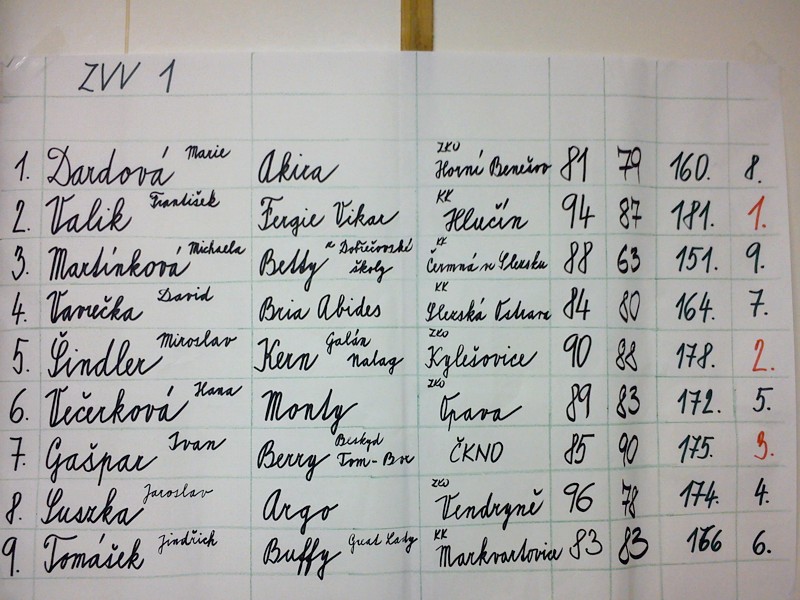 ZVV 1
1. Dardová Marie Akira ZKO Horní Benešov 81 79 160. 8.
2. Valik František Fergie Vikar KK Hlučín 94 87 181. 1.
3. Martínková Michaela Betty z Dobřečovské školy KK Čermná ve Slezsku 88 63 151. 9.
4. Vavrečka David Bria Abides KK Slezská Ostrava 84 80 164. 7.
5. Šindler Miroslav Kern Galán Nalag ZKO Kylešovice 90 88 178. 2.
6. Večerková Hana Monty ZKO Opava 89 83 172. 5.
7. Gašpar Ivan Berry Beskyd Tom-Bor ČKNO 85 90 175. 3.
8. Suszka Jaroslav Argo ZKO Vendryně 96 78 174. 4.
9. Tomášek Jindřich Buffy Great Lady KK Markvartovice 83 83 166 6.